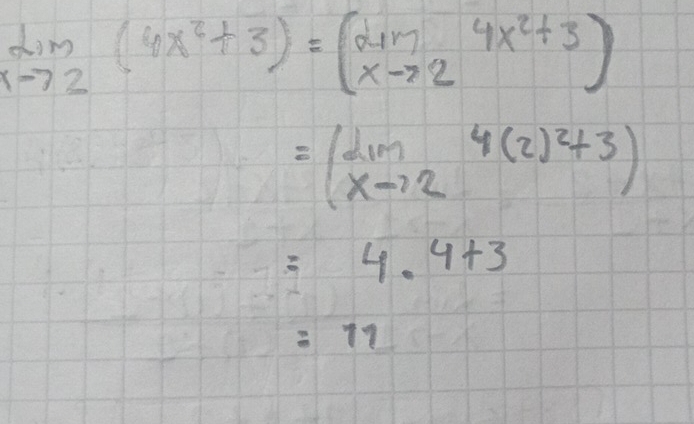 lim x→2 (4x²+3) = (lim x→2 4x²+3)
= (lim x→2 4(2)²+3)
= 4.4+3
= 11